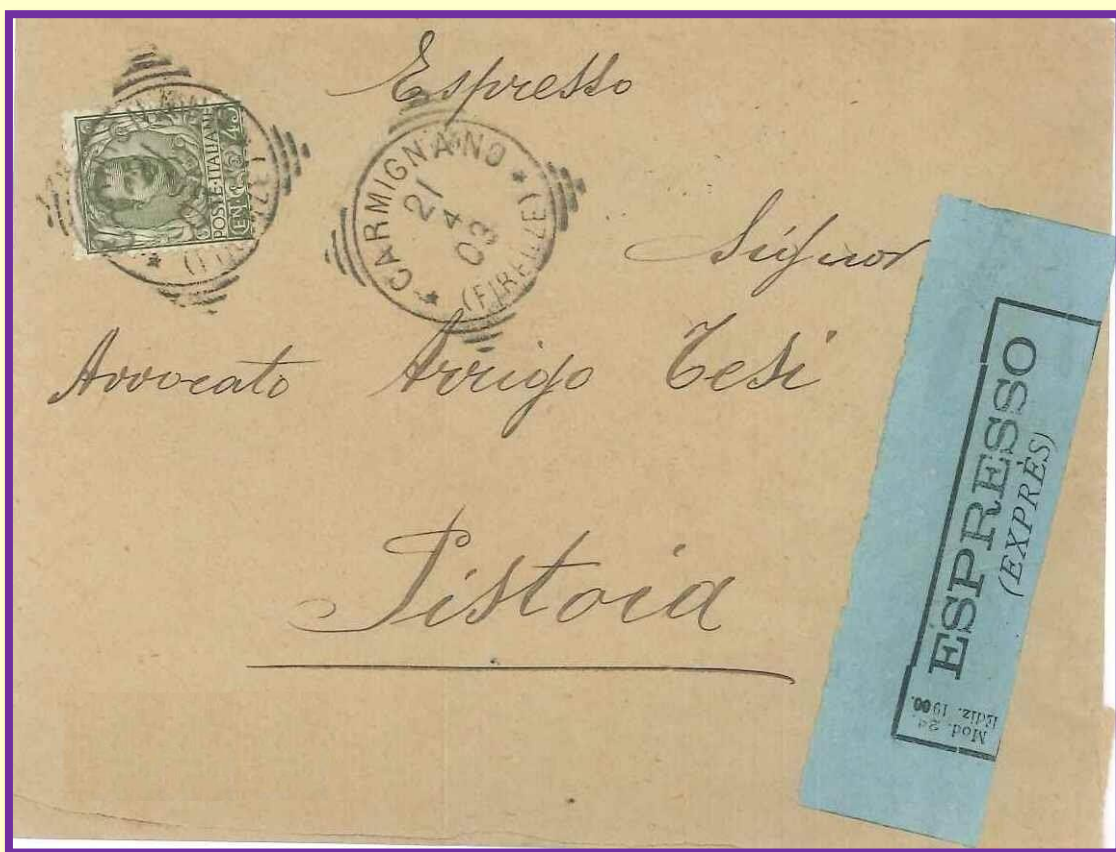 Espresso
POSTE·ITALIANE
CENT. 45
CARMIGNANO
21
4
03
(FIRENZE)
Signor
Avvocato Arrigo Tesi
Pistoia
ESPRESSO
(EXPRÈS)
Mod. 24.
Ediz. 1900.